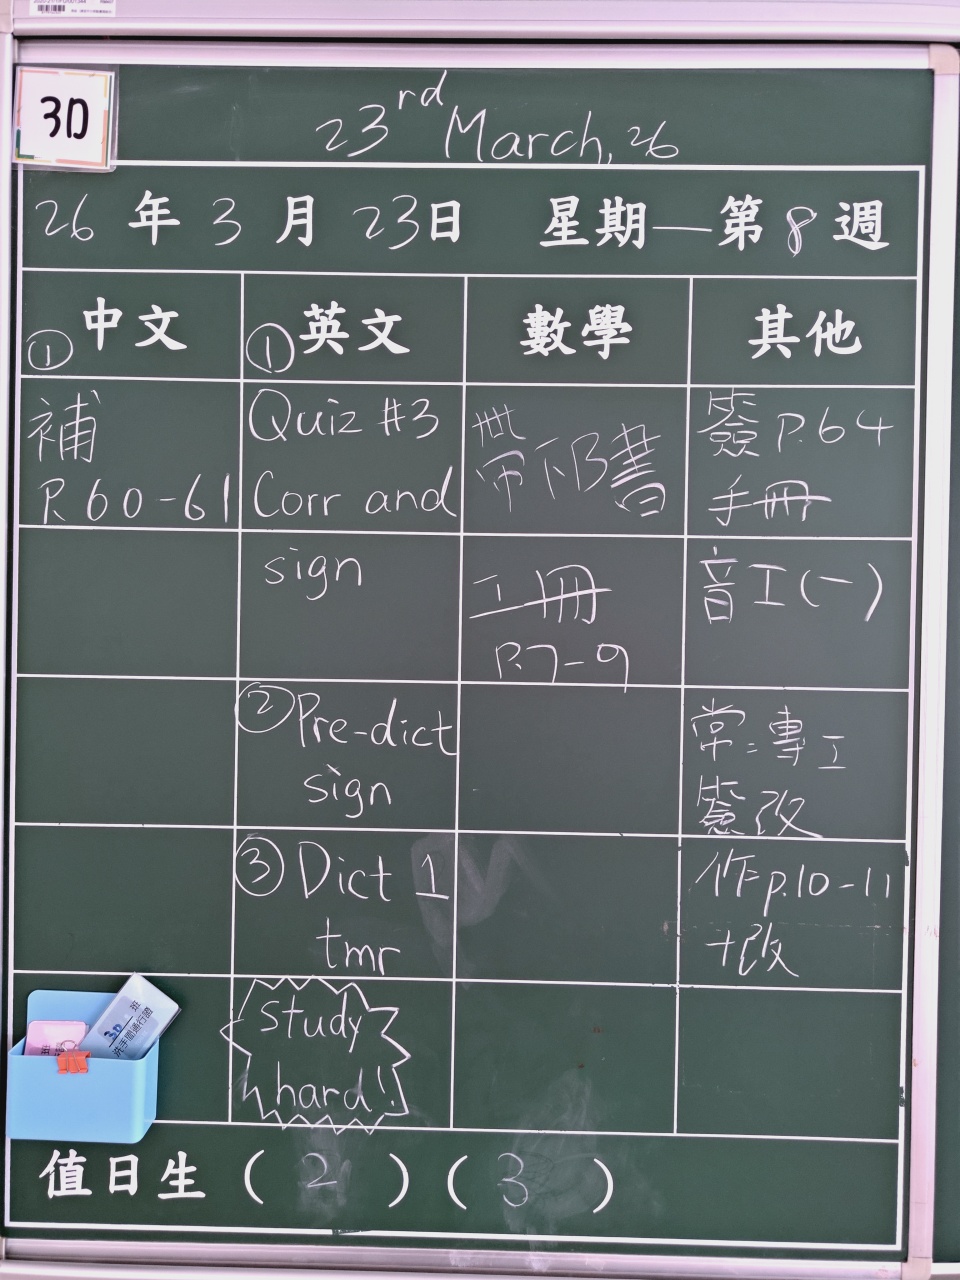 3D
23rd March, 26
26年3月23日 星期一第8週
① 中文
① 英文
數學
其他
補
P.60-61
Quiz #3
Corr and
sign
② Pre-dict
sign
③ Dict 1
tmr
Study
hard!
帶下B書
工冊
P.7-9
簽P.64
手冊
音工(一)
常:專工
簽改
作p.10-11
+改
3D 班
洗手間通行證
值日生 ( 2 ) ( 3 )